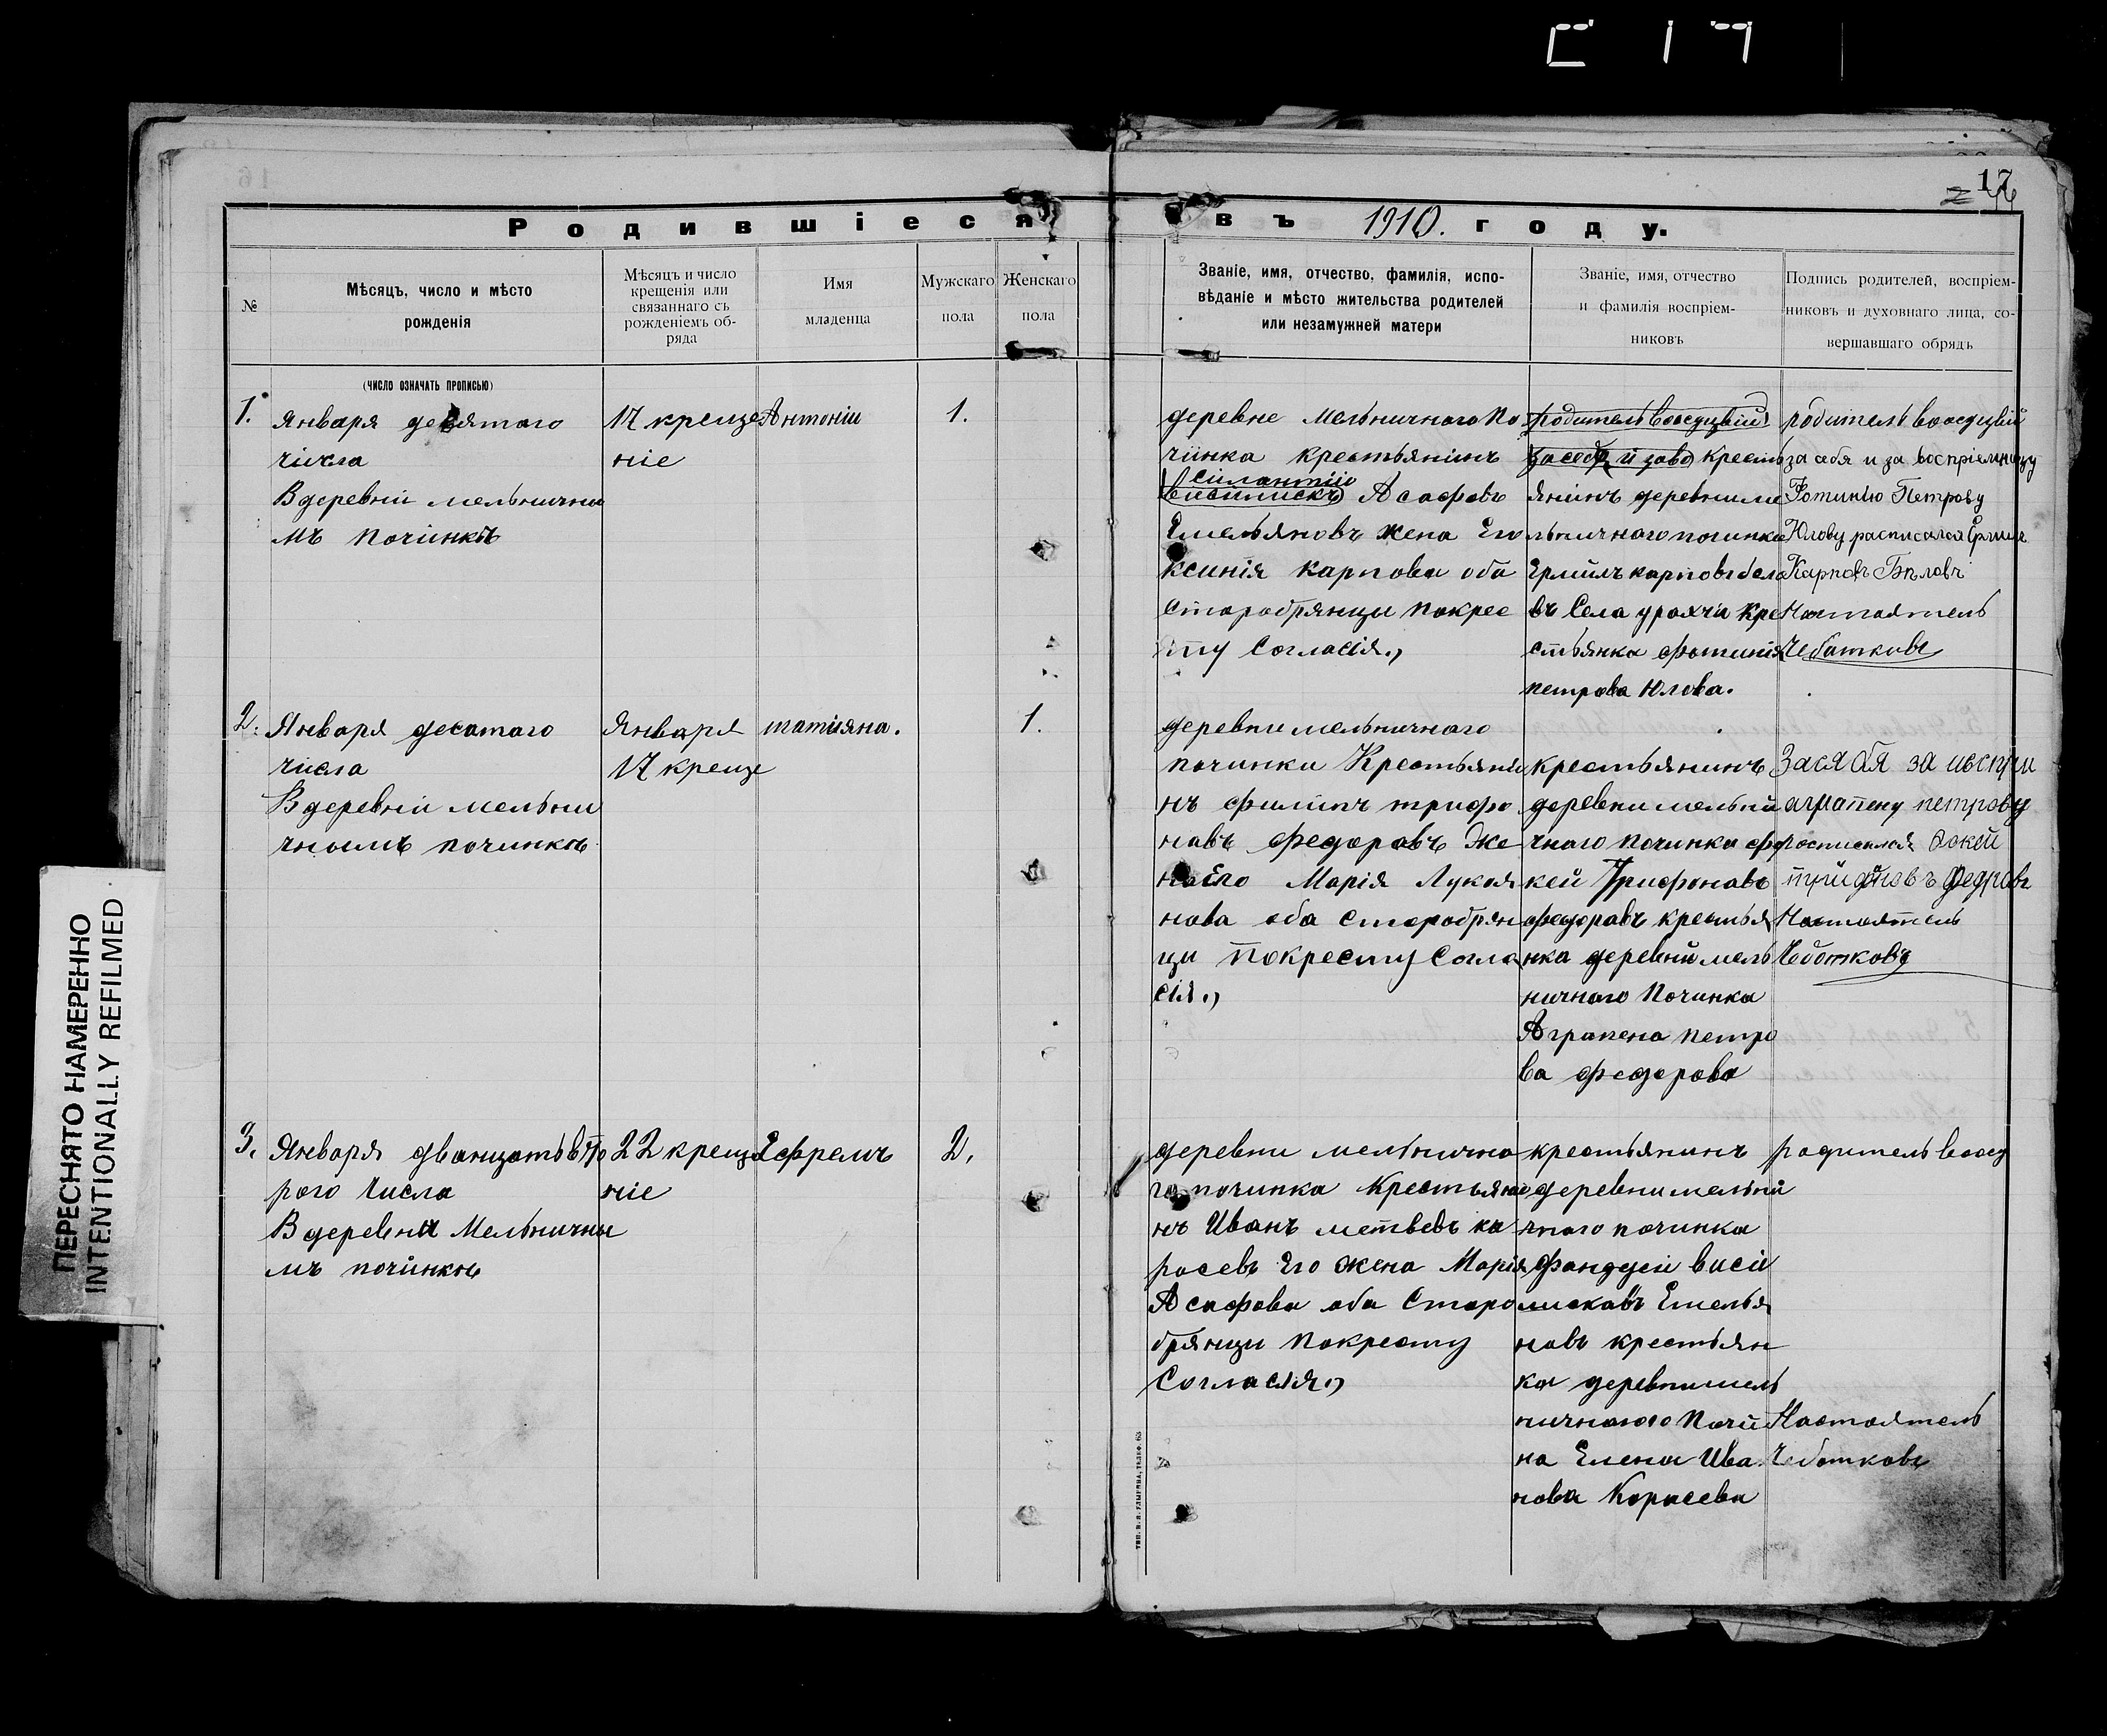 С 17
17
Родившіеся въ 1910. году.
№
Мѣсяцъ, число и мѣсто
рожденія
(число означать прописью)
Мѣсяцъ и число
крещенія или
связаннаго съ
рожденіемъ об-
ряда
Имя
младенца
Мужскаго
пола
Женскаго
пола
Званіе, имя, отчество, фамилія, испо-
вѣданіе и мѣсто жительства родителей
или незамужней матери
Званіе, имя, отчество
и фамилія воспріем-
никовъ
Подпись родителей, воспріем-
никовъ и духовнаго лица, со-
вершавшаго обрядъ
1.
января десятаго
числа
В деревни мельнични
мъ починкѣ
17 креще
ніе
Антоніи
1.
деревне мельничного по
чинка крестьянинъ
силантіи
Асафовъ
Емельяновъ жена Его
ксинія карпова оба
старобрянци покрес
ту Согласія.,
родитель
за себя и зава кресть
янинъ деревни ме
льничного починка
Ермилъ карповъ бело
въ Села урахчи кре
стьянка фотинія
петрова Юлова.
родитель
за себя и за воспріемницу
Фотинію Петрову
Юлову расписался Ермил
Карповъ Бѣловъ
Настоятель
Чебатковъ
2.
Января десатаго
числа
В деревни мельни
чномъ починкѣ
Января
17 креще
татияна.
1.
деревни мельничного
починки Крестьяни
нъ филипъ трифо
новъ федоровъ Же
на Его Марія Лукоя
нова оба старобрян
ци покресту согла
сія.,
крестьянинъ
деревни мельни
чного починка ф
кей Трифоновъ
федоровъ крестья
нка деревни мель
ничного Починка
Аграпена петро
ва федорова
аграпену петрову
росписался
Настоятель
Чеботковъ
3.
Января дванцать вто
рого Числа
В деревни Мельнични
мъ починкѣ
22 креще
ніе
Ефремъ
2.
деревни мельнично
го починка Крестьяни
нъ Иванъ метвевъ ка
расевъ Его жена Марія
Асафова оба Старо
брянци покресту
Согласія.,
крестьянинъ
деревни мельни
чного починка
васи
лисковъ Емелья
новъ крестьян
ка деревни мель
ничного Почи
на Елена Ива
нова Карасева
родитель
Настоятель
Чеботковъ
ПЕРЕСНЯТО НАМЕРЕННО
INTENTIONALLY REFILMED